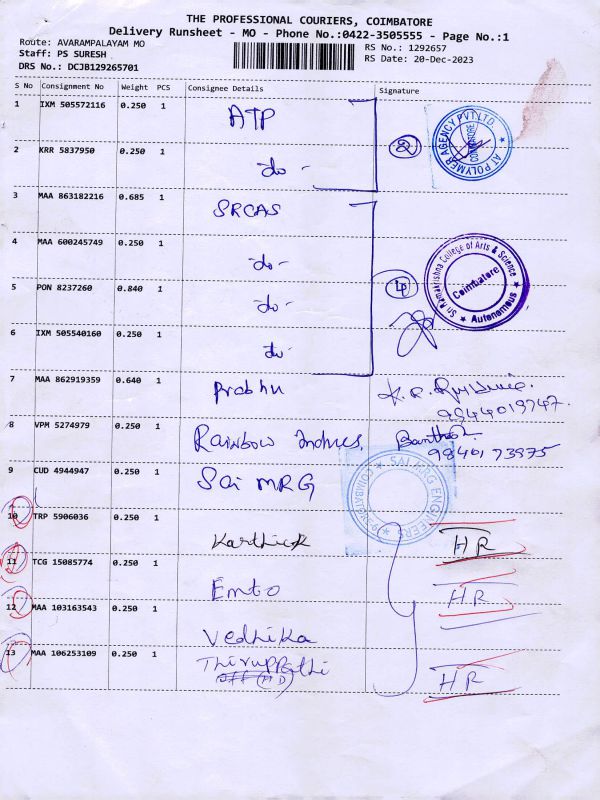 THE PROFESSIONAL COURIERS, COIMBATORE
Delivery Runsheet - MO - Phone No.:0422-3505555 - Page No.:1
Route: AVARAMPALAYAM MO
RS No.: 1292657
Staff: PS SURESH
RS Date: 20-Dec-2023
DRS No.: DCJB129265701
S No Consignment No Weight PCS Consignee Details Signature
1 IXM 505572116 0.250 1 ATP
AT POLYMER AGENCY PVT.LTD. COIMBATORE
2 KRR 5837950 0.250 1 -do-
3 MAA 863182216 0.685 1 SRCAS
4 MAA 600245749 0.250 1 -do-
Sri Ramakrishna College of Arts & Science Coimbatore Autonomous
5 PON 8237260 0.840 1 -do-
6 IXM 505540160 0.250 1 -do-
7 MAA 862919359 0.640 1 Prabhu
9844019747
8 VPM 5274979 0.250 1 Rainbow
9840173975
9 CUD 4944947 0.250 1 Sai MRG
SAI MRG ENGINEERS COIMBATORE
10 TRP 5906036 0.250 1 Karthick HR
11 TCG 15085774 0.250 1 Emto HR
12 MAA 103163543 0.250 1 Vedhika
13 MAA 106253109 0.250 1 Thiruppathi HR